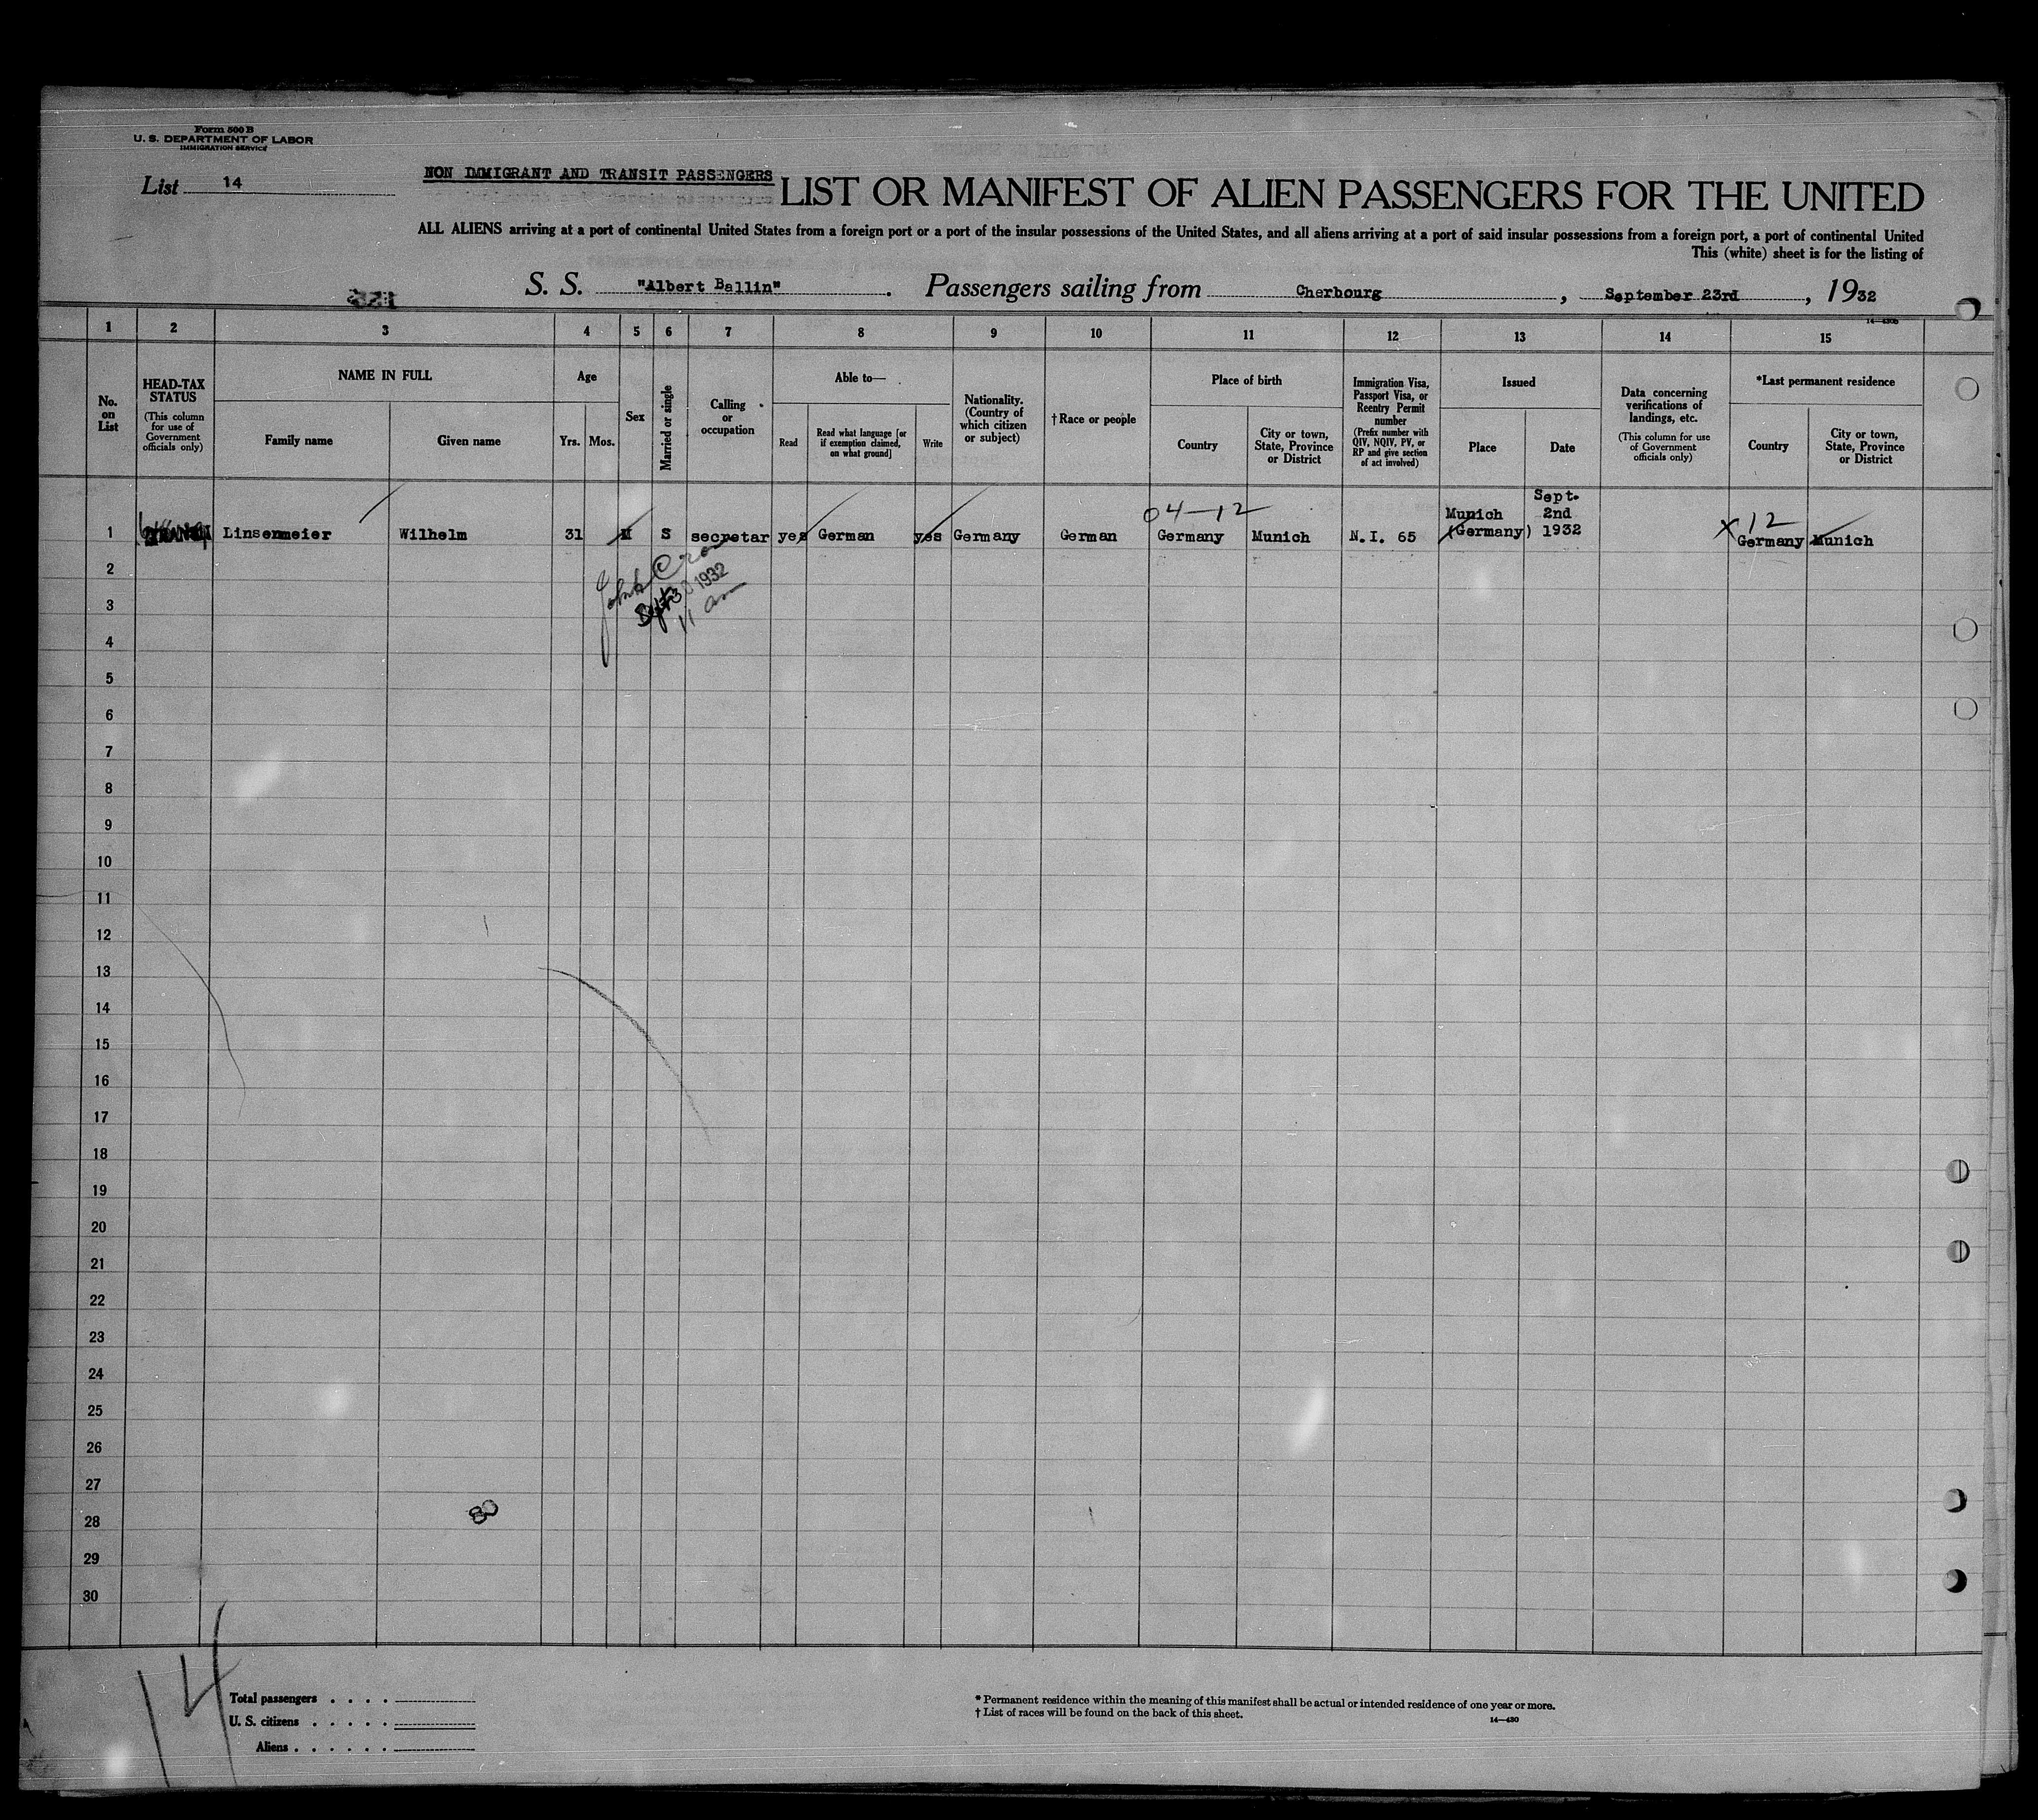 Form 500 B
U. S. DEPARTMENT OF LABOR
IMMIGRATION SERVICE
List 14
NON IMMIGRANT AND TRANSIT PASSENGERS
LIST OR MANIFEST OF ALIEN PASSENGERS FOR THE UNITED
ALL ALIENS arriving at a port of continental United States from a foreign port or a port of the insular possessions of the United States, and all aliens arriving at a port of said insular possessions from a foreign port, a port of continental United
This (white) sheet is for the listing of
S. S. "Albert Ballin". Passengers sailing from Cherbourg, September 23rd, 1932
1 2 3 4 5 6 7 8 9 10 11 12 13 14 15
No. on List
HEAD-TAX STATUS
(This column for use of Government officials only)
NAME IN FULL
Family name
Given name
Age
Yrs.
Mos.
Sex
Married or single
Calling or occupation
Able to—
Read
Read what language [or if exemption claimed, on what ground]
Write
Nationality. (Country of which citizen or subject)
†Race or people
Place of birth
Country
City or town, State, Province or District
Immigration Visa, Passport Visa, or Reentry Permit number
(Prefix number with QIV, NQIV, PV, or RP and give section of act involved)
Issued
Place
Date
Data concerning verifications of landings, etc.
(This column for use of Government officials only)
*Last permanent residence
Country
City or town, State, Province or District
04-12
X 12
1 Linsenmeier Wilhelm 31 M S secretar yes German yes Germany German Germany Munich N.I. 65 Munich (Germany) Sept. 2nd 1932 Germany Munich
John
1932
11 am
2
3
4
5
6
7
8
9
10
11
12
13
14
15
16
17
18
19
20
21
22
23
24
25
26
27
28
29
30
80
14
Total passengers . . . .
U. S. citizens . . . . .
Aliens . . . . . .
* Permanent residence within the meaning of this manifest shall be actual or intended residence of one year or more.
† List of races will be found on the back of this sheet.
14—430